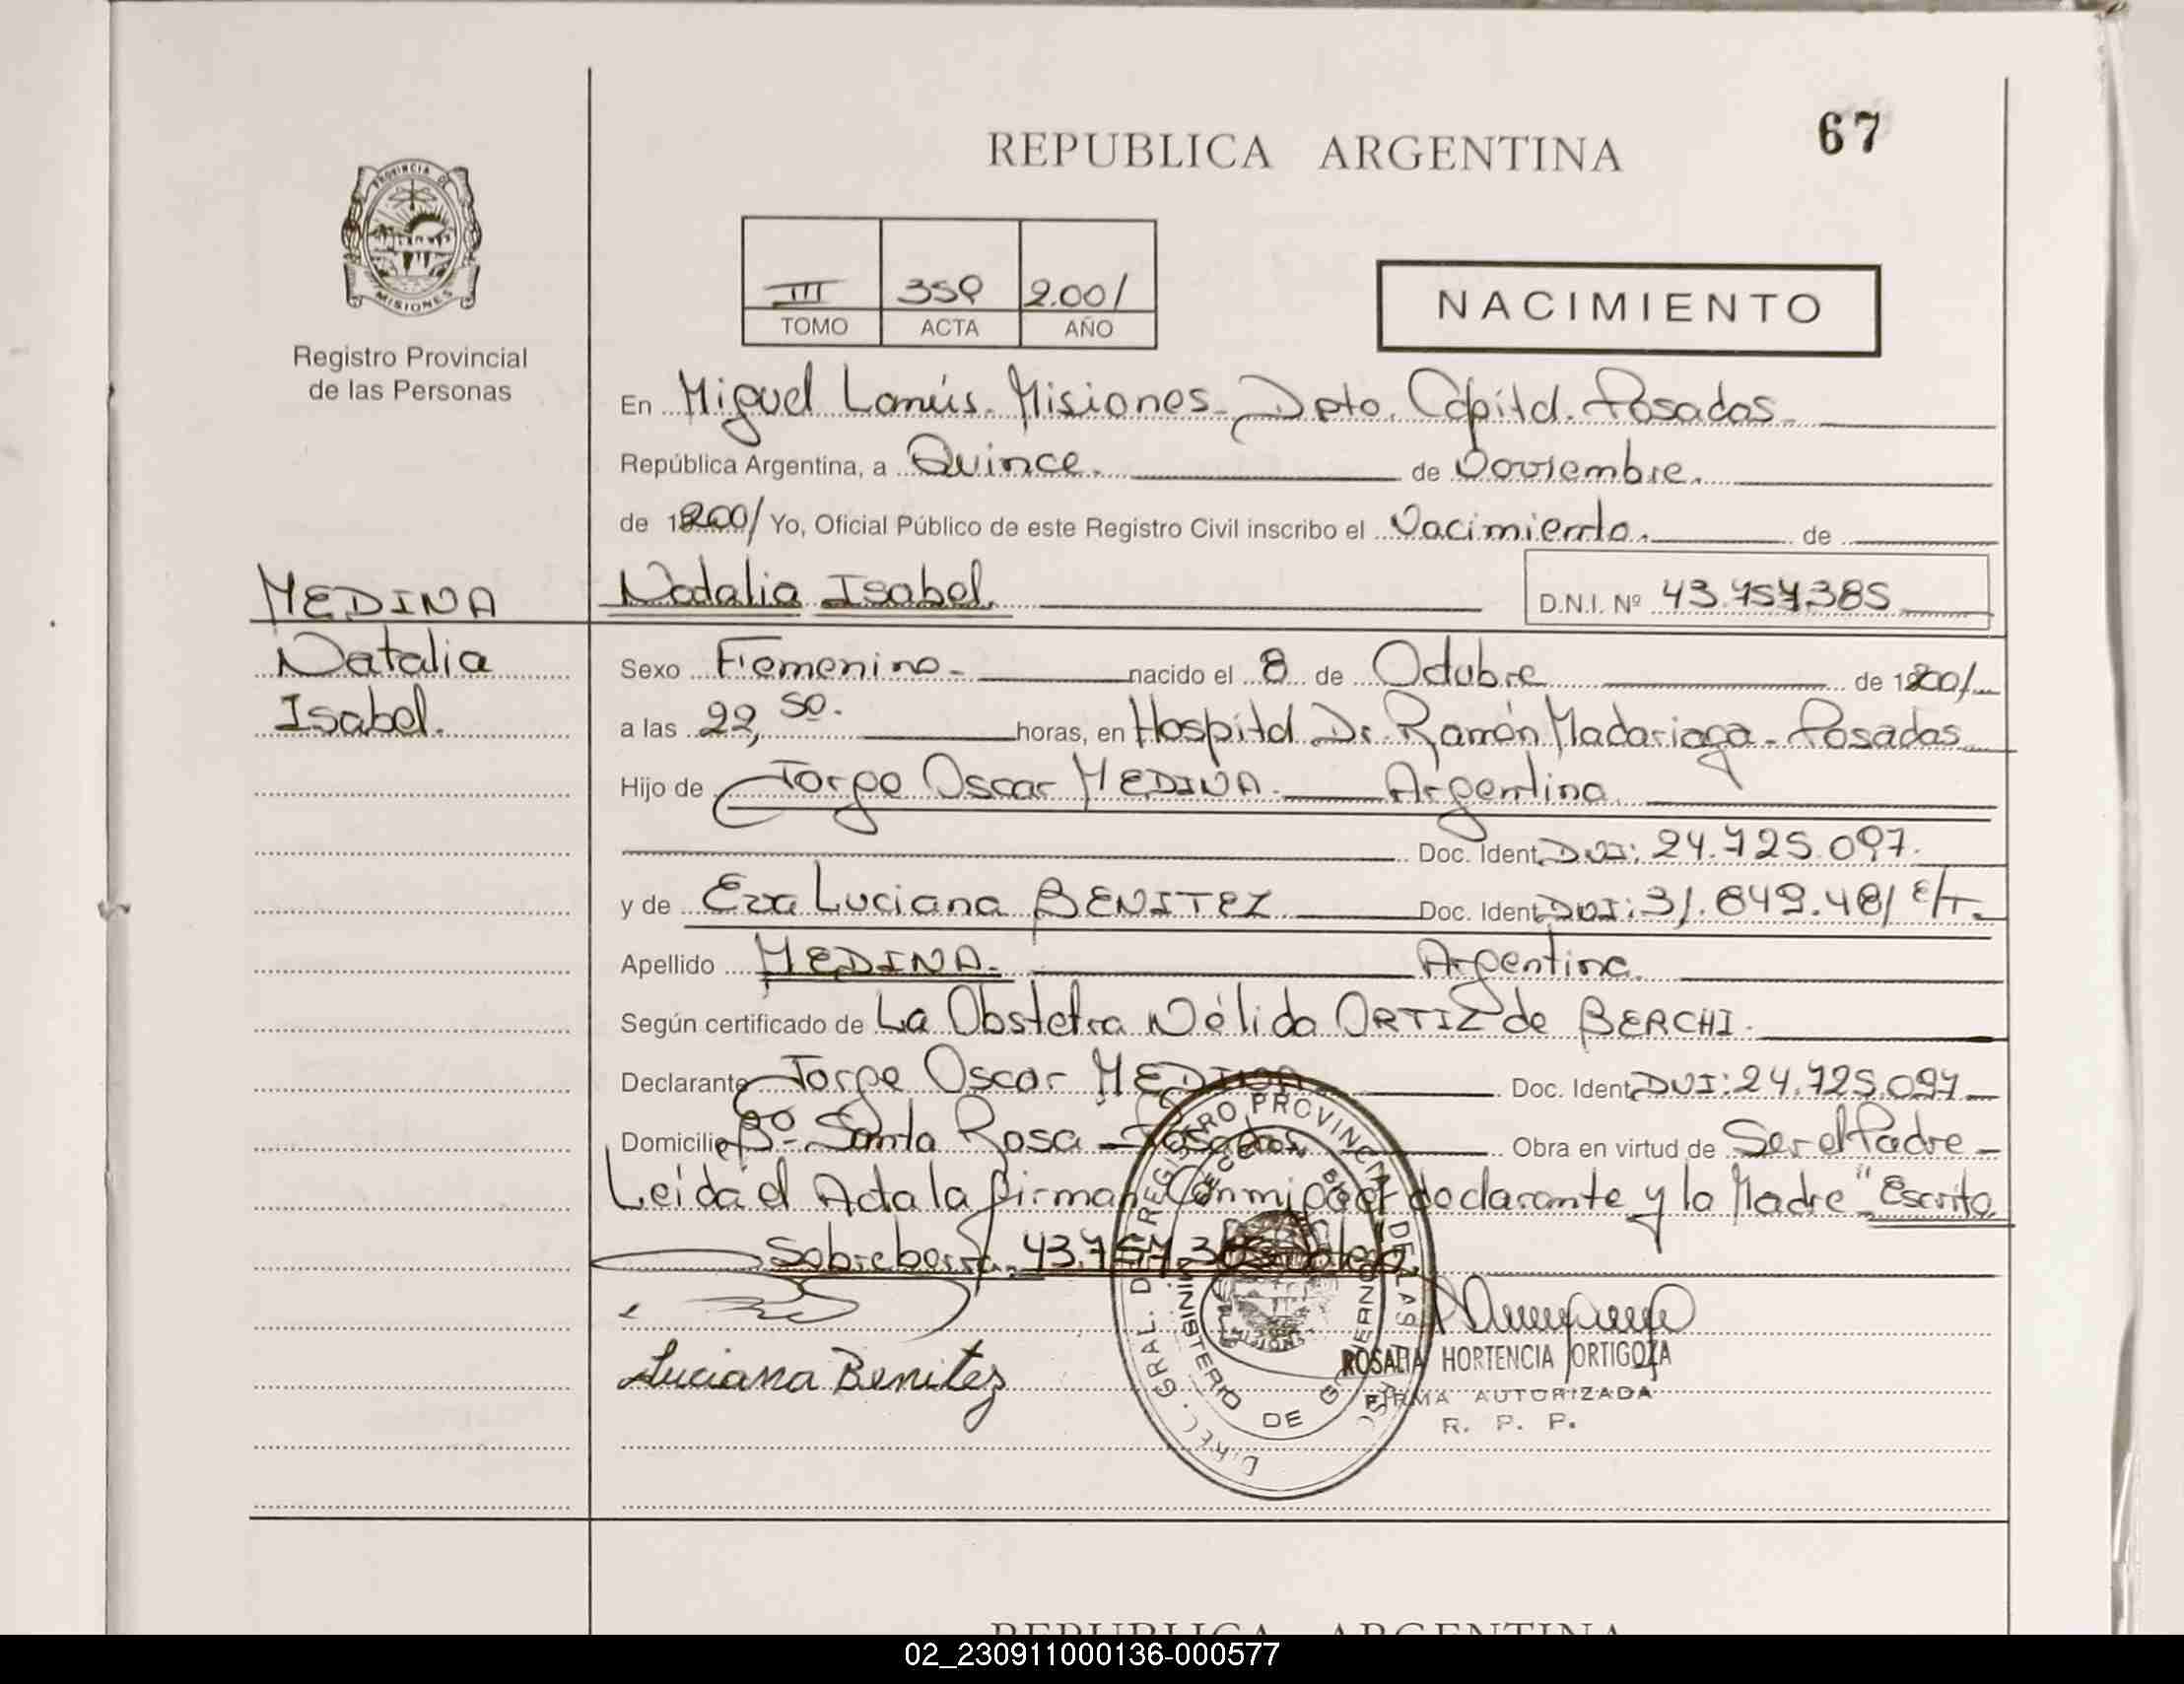 67
REPUBLICA ARGENTINA
PROVINCIA DE
MISIONES
Registro Provincial
de las Personas
III 359 2.001
TOMO ACTA AÑO
NACIMIENTO
En Miguel Lanús. Misiones - Dpto. Capital. Posadas -
República Argentina, a Quince. de Noviembre.
de 2001 Yo, Oficial Público de este Registro Civil inscribo el Nacimiento. de
MEDINA
Natalia
Isabel.
Natalia Isabel. D.N.I. Nº 43.757.385
Sexo Femenino - nacido el 8 de Octubre de 2001
a las 22, 50. horas, en Hospital Dr. Ramón Madariaga - Posadas
Hijo de Jorge Oscar MEDINA. Argentino
Doc. Ident. DNI: 24.725.097.
y de Eva Luciana BENITEZ Doc. Ident. DNI: 31.849.481 E/T.
Apellido MEDINA. Argentina.
Según certificado de La Obstetra Nélida ORTIZ de BERCHI.
Declarante Jorge Oscar MEDINA Doc. Ident. DNI: 24.725.097
Domicilio Bº Santa Rosa - Posadas Obra en virtud de Ser el Padre -
Leída el Acta la firman Conmigo el declarante y la Madre "Escrito
Sobreborra. 43.757.385 Vale".
Luciana Benitez
DIREC. GRAL. DEL REGISTRO PROVINCIAL DE LAS
MINISTERIO DE GOBIERNO
ROSALIA HORTENCIA ORTIGOZA
FIRMA AUTORIZADA
R. P. P.
REPUBLICA ARGENTINA
02_230911000136-000577